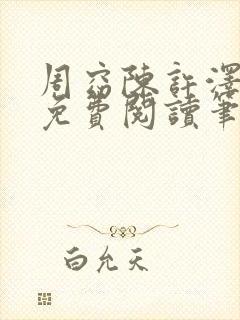 周窈陈许泽
免费阅读笔
白允天